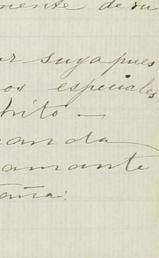 mente de su
suya pues
os especiales
rito —
anda
amante
aña: